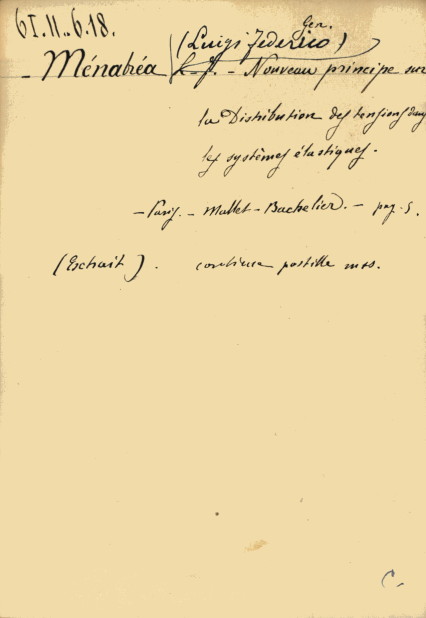 61.11.6.18.
Gen.
(Luigi Federico)
- Ménabréa L.-F. - Nouveau principe sur
la Distribution des tensions dans
les systèmes élastiques.
- Paris. - Mallet-Bachelier. - pag. 5.
(Extrait). continua postille mss.
C.